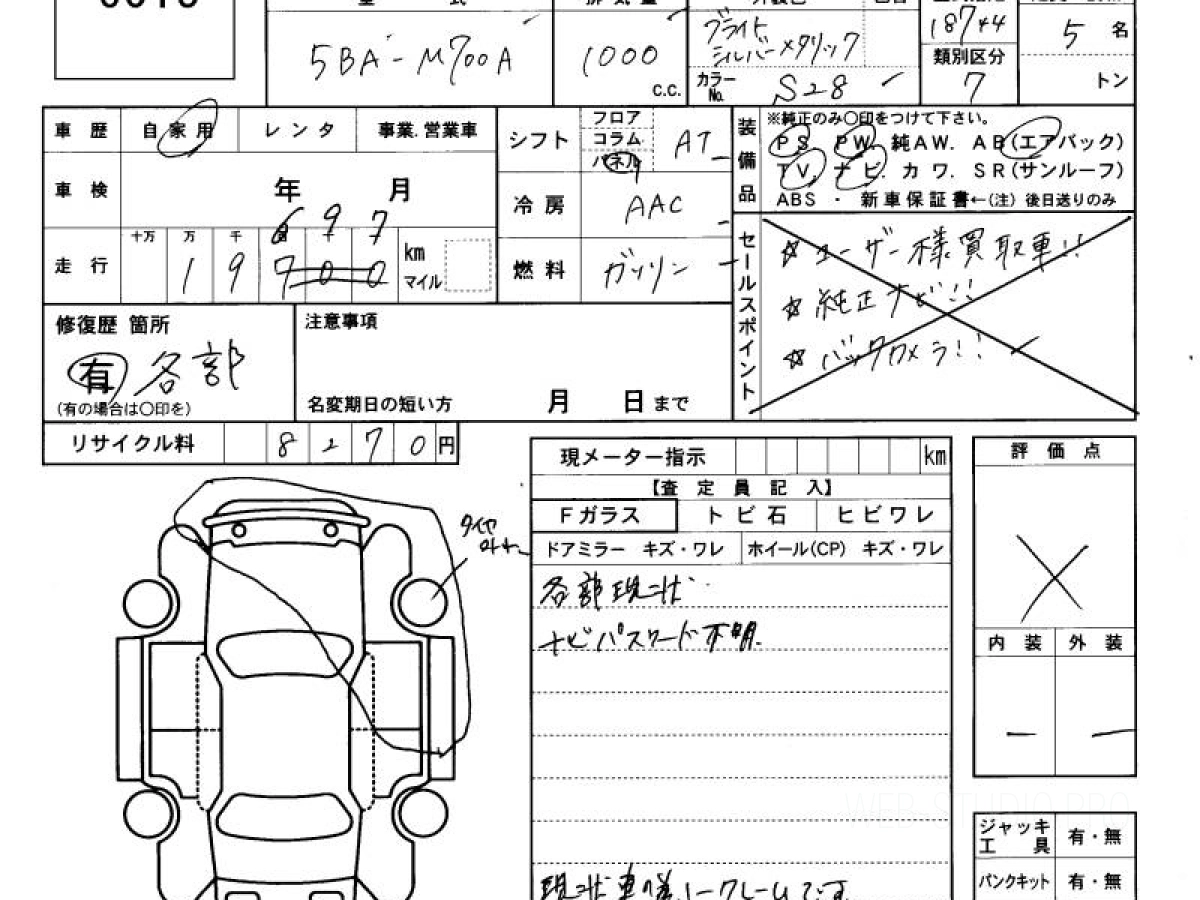 5BA-M700A
1000
c.c.
ブライト
シルバーメタリック
カラーNo. S28
18744
類別区分
7
5 名
トン
車歴 自家用 レンタ 事業.営業車
車検 年 月
走行 十万 万 千 百 十
1 9 7 0 0
6 9 7
km
マイル
シフト フロア コラム パネル AT
冷房 AAC
燃料 ガソリン
装備品
※純正のみ〇印をつけて下さい。
PS. PW. 純AW. AB(エアバック)
TV. ナビ. カワ. SR(サンルーフ)
ABS ・ 新車保証書←(注) 後日送りのみ
セールスポイント
☆ ユーザー様買取車!!
☆ 純正ナビ!!
☆ バックカメラ!!
修復歴 箇所
有 各部
(有の場合は〇印を)
注意事項
名変期日の短い方 月 日まで
リサイクル料 8 2 7 0 円
現メーター指示 km
【査定員記入】
Fガラス トビ石 ヒビワレ
ドアミラー キズ・ワレ ホイール(CP) キズ・ワレ
各部現状
ナビパスワード不明.
評価点
×
内装 外装
ー ー
タイヤ
ジャッキ
工具 有・無
パンクキット 有・無
WEB-STUDIO.PRO